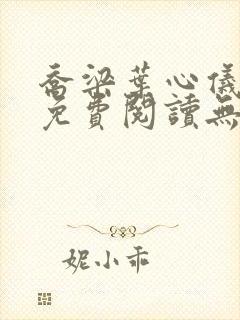 喬梁葉心儀
免費閱讀無
妮小乖